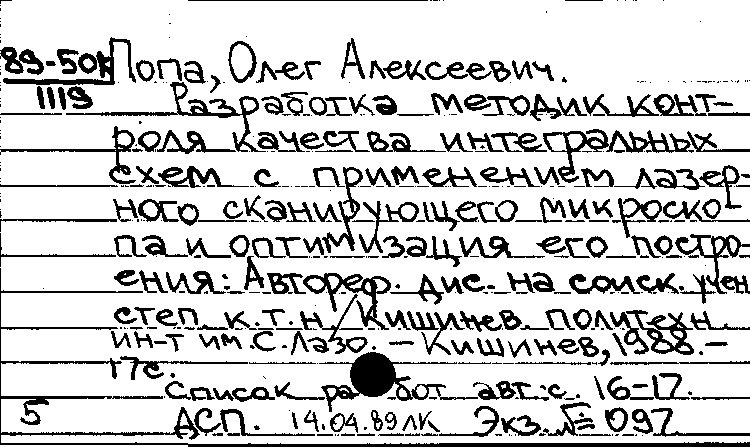 89-50к Попа, Олег Алексеевич.
1119
Разработка методик конт-
роля качества интегральных
схем с применением лазер-
ного сканирующего микроско-
па и оптимизация его постро-
ения: Автореф. дис. на соиск. учен
степ. к.т.н / Кишинев. политехн.
ин-т им. С. Лазо. – Кишинев, 1988. –
17с.
Список работ авт.: с. 16-17.
5 АСП. 14.04.89 ЛК Экз. № 097